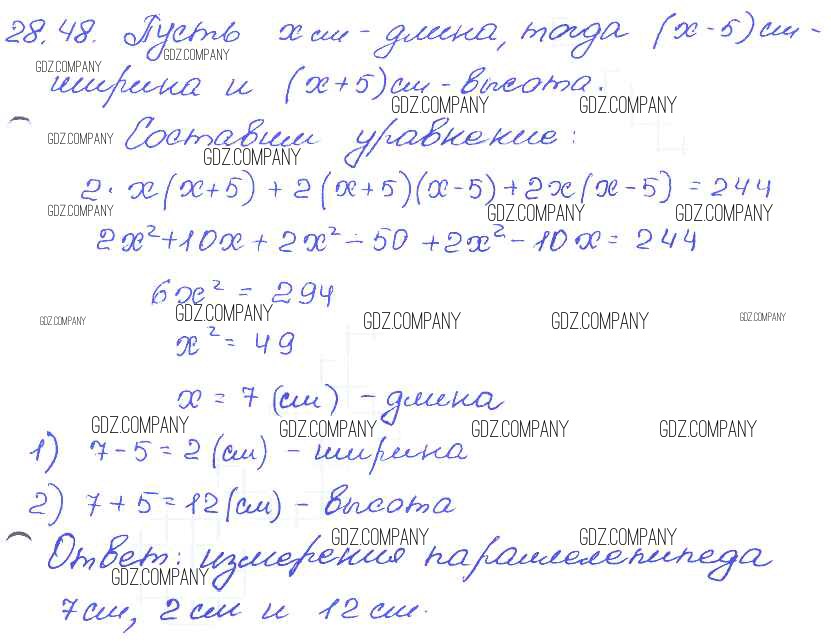 28.48. Пусть x см - длина, тогда (x-5) см -
GDZ.COMPANY
GDZ.COMPANY
ширина и (x+5) см - высота.
GDZ.COMPANY GDZ.COMPANY
GDZ.COMPANY Составим уравнение:
GDZ.COMPANY
2·x(x+5) + 2(x+5)(x-5) + 2x(x-5) = 244
GDZ.COMPANY GDZ.COMPANY GDZ.COMPANY
2x²+10x + 2x² - 50 + 2x² - 10x = 244
6x² = 294
GDZ.COMPANY GDZ.COMPANY GDZ.COMPANY GDZ.COMPANY GDZ.COMPANY
x² = 49
x = 7 (см) - длина
GDZ.COMPANY GDZ.COMPANY GDZ.COMPANY GDZ.COMPANY
1) 7-5 = 2 (см) - ширина
2) 7+5 = 12 (см) - высота
GDZ.COMPANY GDZ.COMPANY
Ответ: измерения параллелепипеда
GDZ.COMPANY
7 см, 2 см и 12 см.